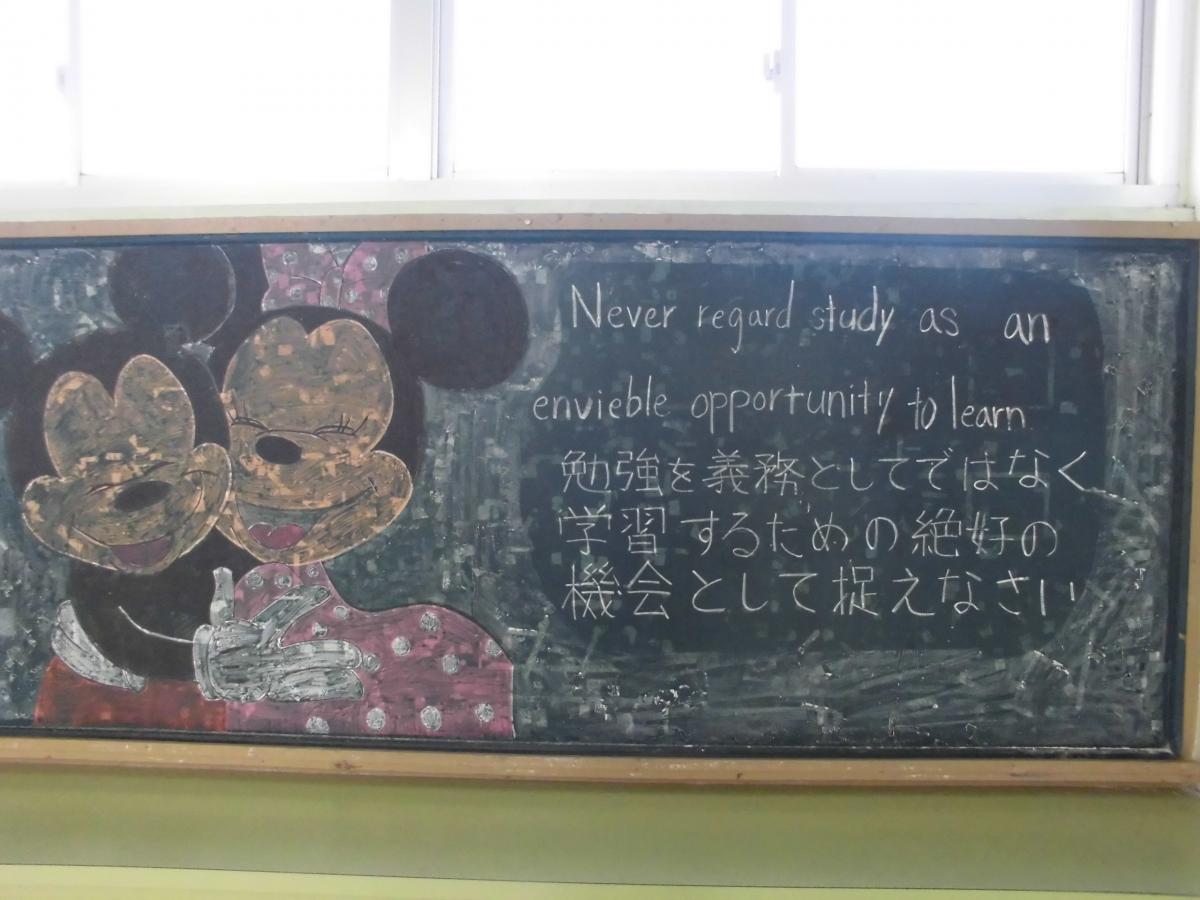 Never regard study as an
envieble opportunity to learn
勉強を義務としてではなく
学習するための絶好の
機会として捉えなさい